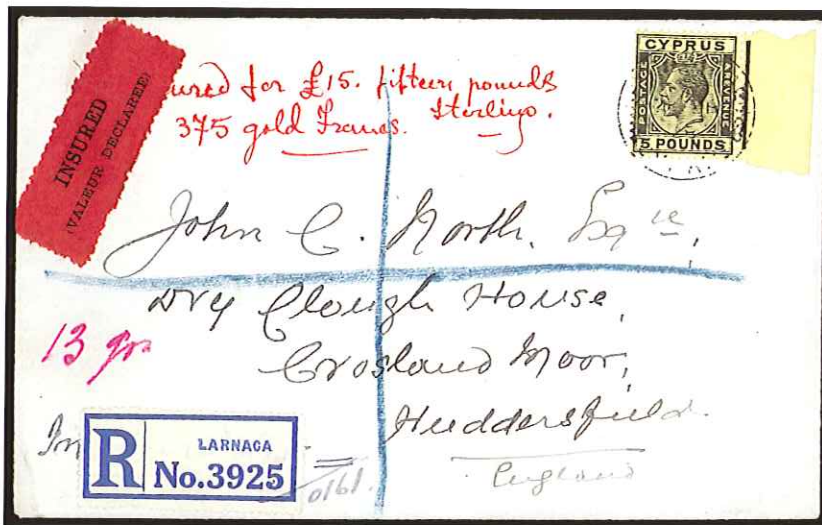 INSURED
(VALEUR DECLAREE)
ured for £15. fifteen pounds
Sterling.
375 gold Francs.
CYPRUS
POSTAGE
REVENUE
5 POUNDS
John C. North, Esqre,
Dry Clough House,
Crosland Moor,
Huddersfield.
England
13 grs
In
R
LARNACA
No.3925
0161.